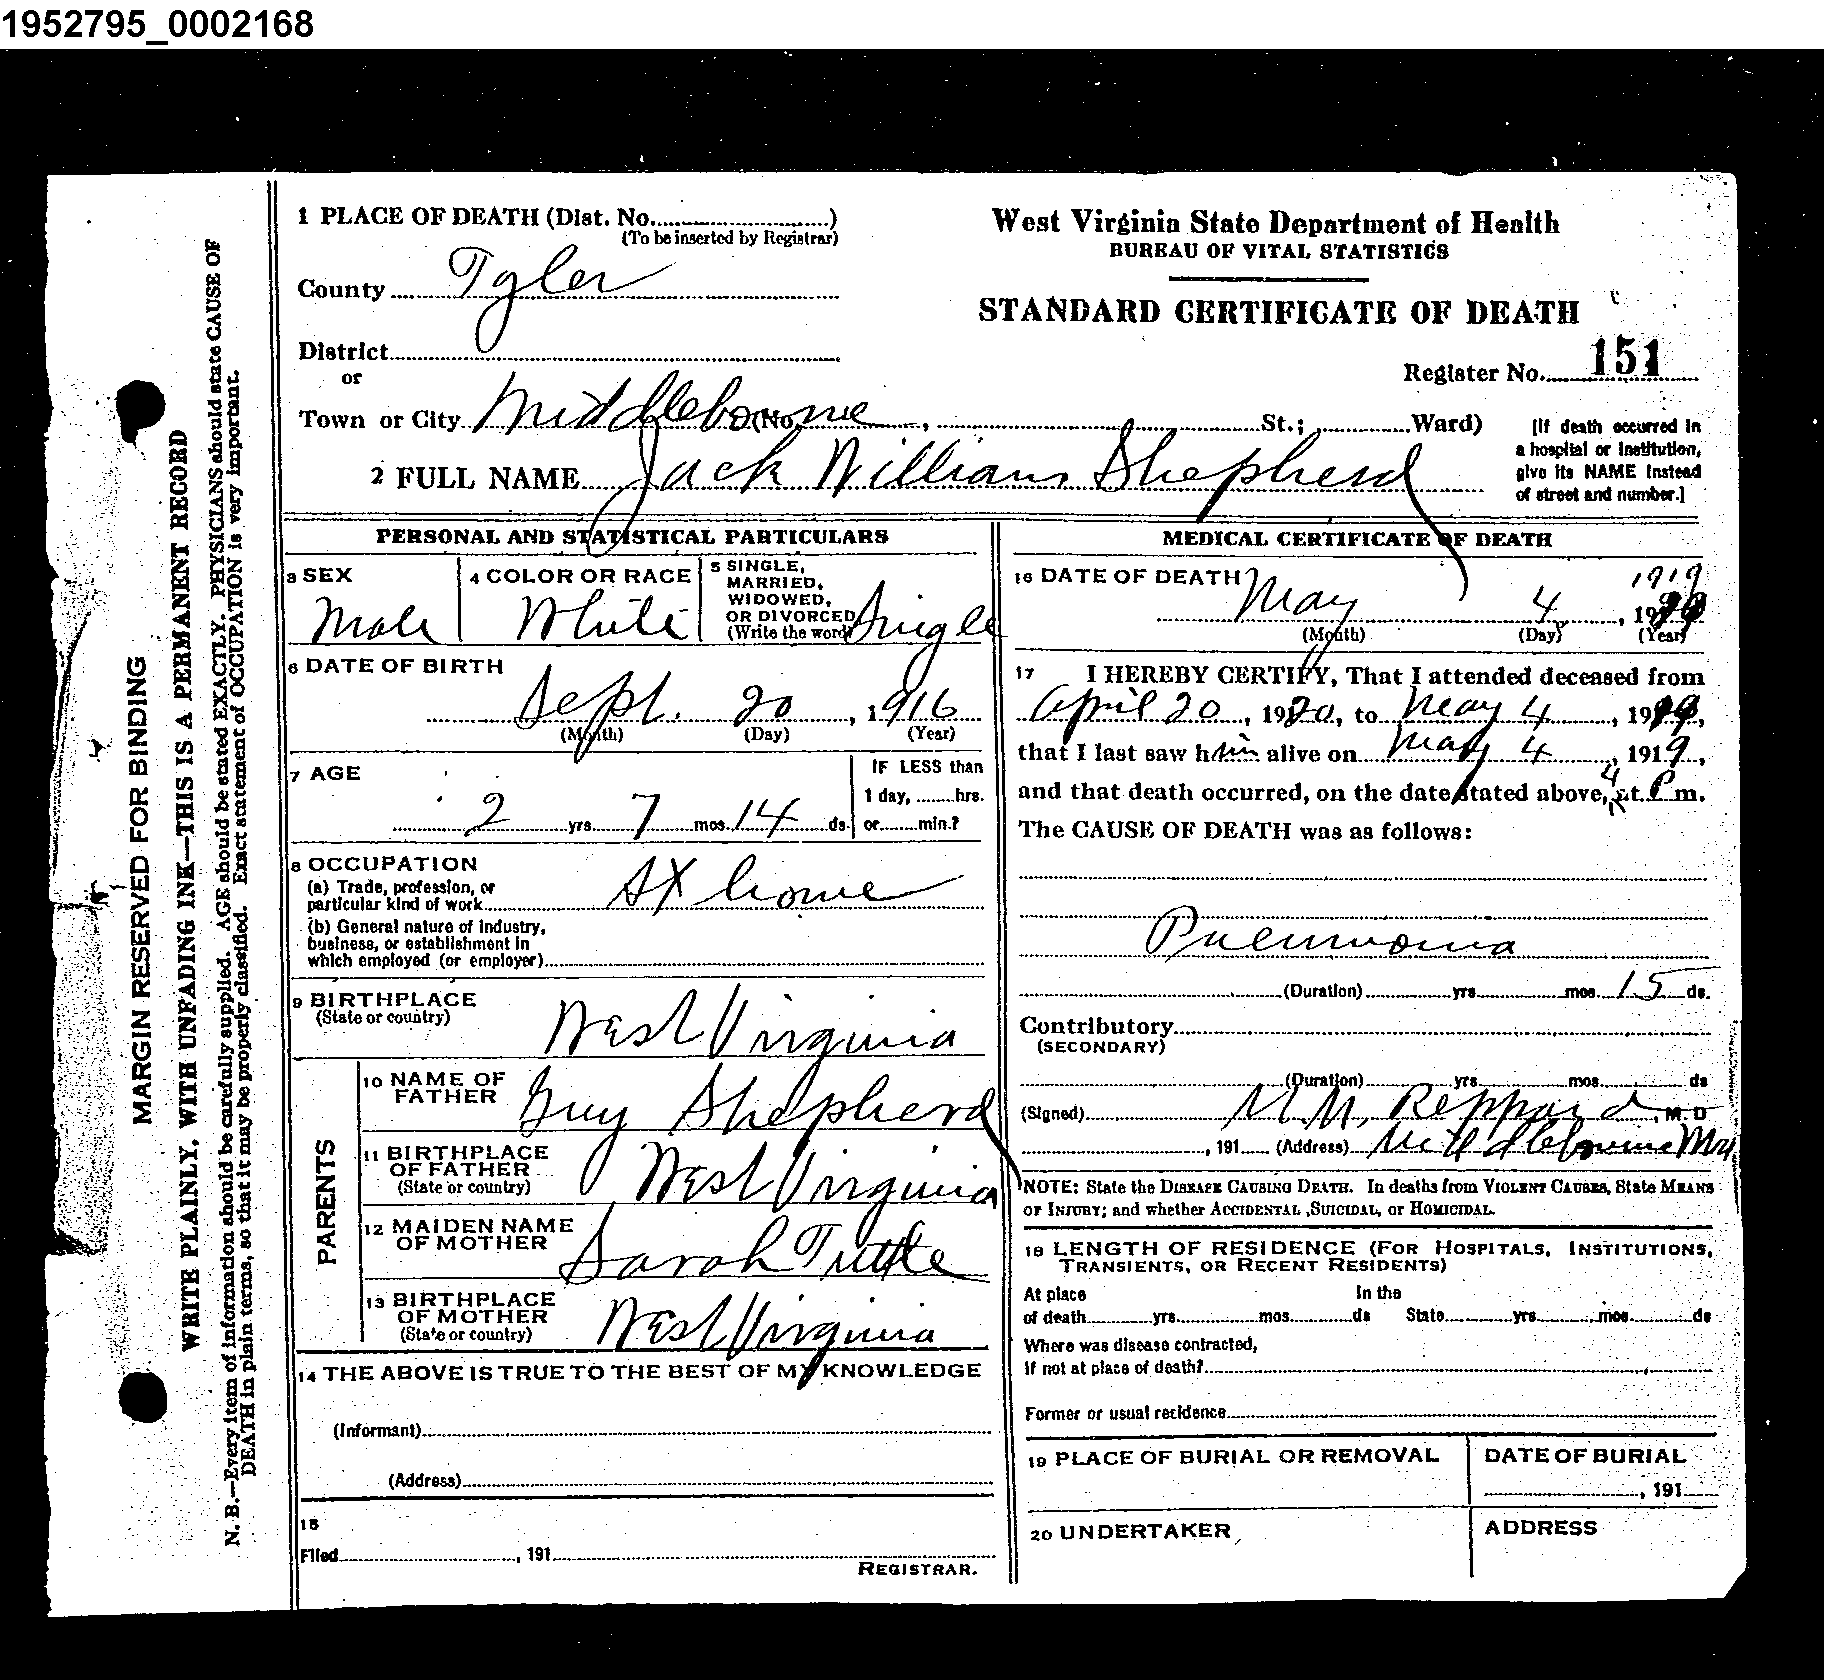 1952795_0002168
1 PLACE OF DEATH (Dist. No. )
(To be inserted by Registrar)
County Tyler
District
or
Town or City Middlebourne (No. , St.; Ward)
2 FULL NAME Jack William Shepherd
West Virginia State Department of Health
BUREAU OF VITAL STATISTICS
STANDARD CERTIFICATE OF DEATH
Register No. 151
[If death occurred in
a hospital or institution,
give its NAME instead
of street and number.]
MARGIN RESERVED FOR BINDING
WRITE PLAINLY, WITH UNFADING INK—THIS IS A PERMANENT RECORD
N. B.—Every item of information should be carefully supplied. AGE should be stated EXACTLY. PHYSICIANS should state CAUSE OF
DEATH in plain terms, so that it may be properly classified. Exact statement of OCCUPATION is very important.
PERSONAL AND STATISTICAL PARTICULARS
3 SEX
Male
4 COLOR OR RACE
White
5 SINGLE,
MARRIED,
WIDOWED,
OR DIVORCED
(Write the word)
Single
6 DATE OF BIRTH
Sept. 20, 1916
(Month) (Day) (Year)
7 AGE
2 yrs 7 mos. 14 ds.
IF LESS than
1 day, hrs.
or min.?
8 OCCUPATION
(a) Trade, profession, or
particular kind of work At home
(b) General nature of industry,
business, or establishment in
which employed (or employer)
9 BIRTHPLACE
(State or country)
West Virginia
PARENTS
10 NAME OF
FATHER
Guy Shepherd
11 BIRTHPLACE
OF FATHER
(State or country)
West Virginia
12 MAIDEN NAME
OF MOTHER
Sarah Tuttle
13 BIRTHPLACE
OF MOTHER
(State or country)
West Virginia
14 THE ABOVE IS TRUE TO THE BEST OF MY KNOWLEDGE
(Informant)
(Address)
15
Filed , 191
REGISTRAR.
MEDICAL CERTIFICATE OF DEATH
16 DATE OF DEATH
1919
May 4, 19
(Month) (Day) (Year)
17 I HEREBY CERTIFY, That I attended deceased from
April 20, 1920, to May 4, 1919,
that I last saw him alive on May 4, 1919,
and that death occurred, on the date stated above, at 4 P m.
The CAUSE OF DEATH was as follows:
Pneumonia
(Duration) yrs. mos. 15 ds.
Contributory
(SECONDARY)
(Duration) yrs mos ds
(Signed) M.M. Reppard, M. D
, 191 (Address) Middlebourne
NOTE: State the DISEASE CAUSING DEATH. In deaths from VIOLENT CAUSES, State MEANS
OF INJURY; and whether ACCIDENTAL, SUICIDAL, or HOMICIDAL.
18 LENGTH OF RESIDENCE (FOR HOSPITALS, INSTITUTIONS,
TRANSIENTS, OR RECENT RESIDENTS)
At place In the
of death yrs. mos. ds State yrs. mos. ds
Where was disease contracted,
If not at place of death?
Former or usual residence
19 PLACE OF BURIAL OR REMOVAL
DATE OF BURIAL
, 191
20 UNDERTAKER
ADDRESS